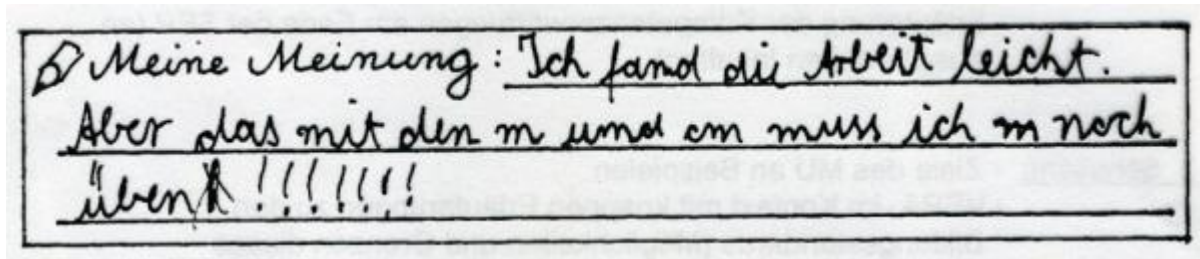 Meine Meinung: Ich fand die Arbeit leicht.
Aber das mit den m und cm muss ich m noch
üben !!!!!!!